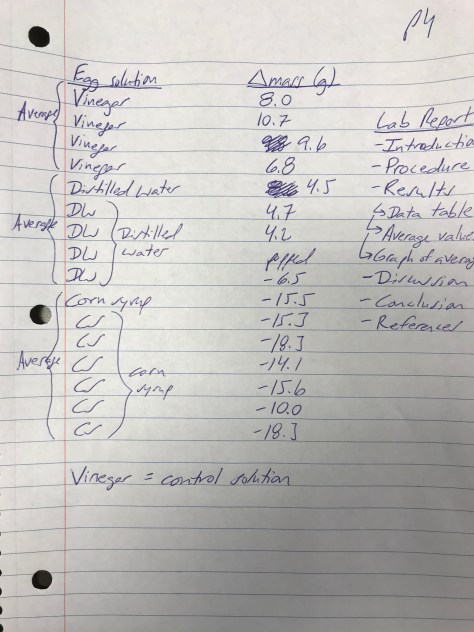 P4
Egg solution Δmass (g)
Vinegar 8.0
Average Vinegar 10.7
Lab Report
Vinegar 9.6
- Introductio
Vinegar 6.8
- Procedure
Distilled Water 4.5
- Results
DW 4.7
↳ Data table
Average DW Distilled 4.2
↳ Average value
DW water popped
↳ Graph of averag
DW -6.5
- Discussion
Corn syrup -15.5
- Conclusion
CS -15.3
- References
CS -18.3
Average CS corn -14.1
CS syrup -15.6
CS -10.0
CS -18.3
Vinegar = control solution